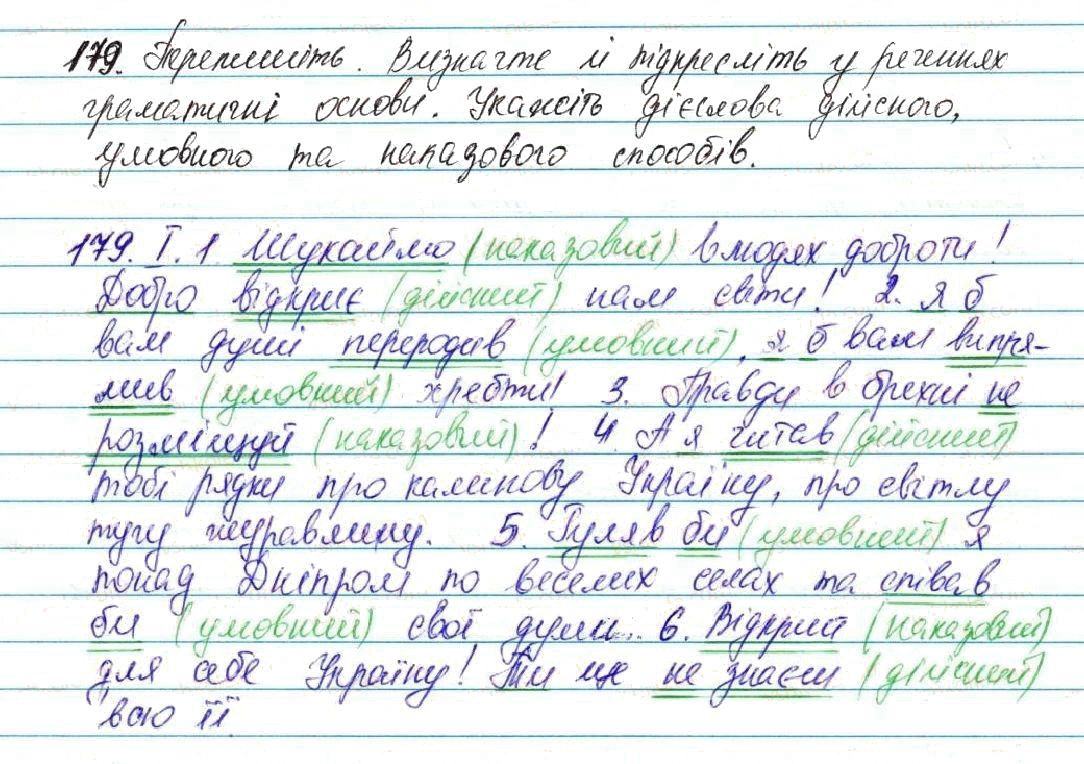 179. Перепишіть. Визначте й підкресліть у реченнях
граматичні основи. Укажіть дієслова дійсного,
умовного та наказового способів.
179. I. 1 Шукаймо (наказовий) в людях доброти!
Добро відкриє (дійсний) нам світи! 2. Я б
вам душі переродив (умовний), я б вам випря-
мив (умовний) хребти! 3. Правди в брехні не
розмінюй (наказовий)! 4. А я читав (дійсний)
тобі рядки про калинову Україну, про світлу
тугу журавлину. 5. Гуляв би (умовний) я
понад Дніпром по веселих селах та співав
би (умовний) свої думи. 6. Відкрий (наказовий)
для себе Україну! Ти ще не знаєш (дійсний)
всю її